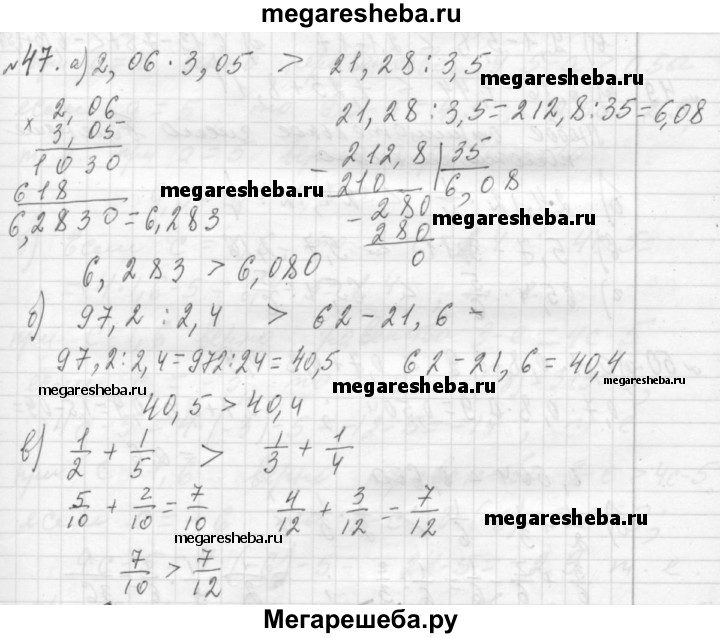 megaresheba.ru
№47. а) 2,06 · 3,05 > 21,28 : 3,5
megaresheba.ru
2,06
× 3,05
1030
618
6,2830 = 6,283
megaresheba.ru
21,28 : 3,5 = 212,8 : 35 = 6,08
- 212,8 | 35
210 | 6,08
- 280
280
0
megaresheba.ru
6,283 > 6,080
б) 97,2 : 2,4 > 62 - 21,6
97,2 : 2,4 = 972 : 24 = 40,5 62 - 21,6 = 40,4
megaresheba.ru megaresheba.ru megaresheba.ru
40,5 > 40,4
в) 1/2 + 1/5 > 1/3 + 1/4
5/10 + 2/10 = 7/10 4/12 + 3/12 = 7/12
megaresheba.ru
megaresheba.ru
7/10 > 7/12
Мегарешеба.ру